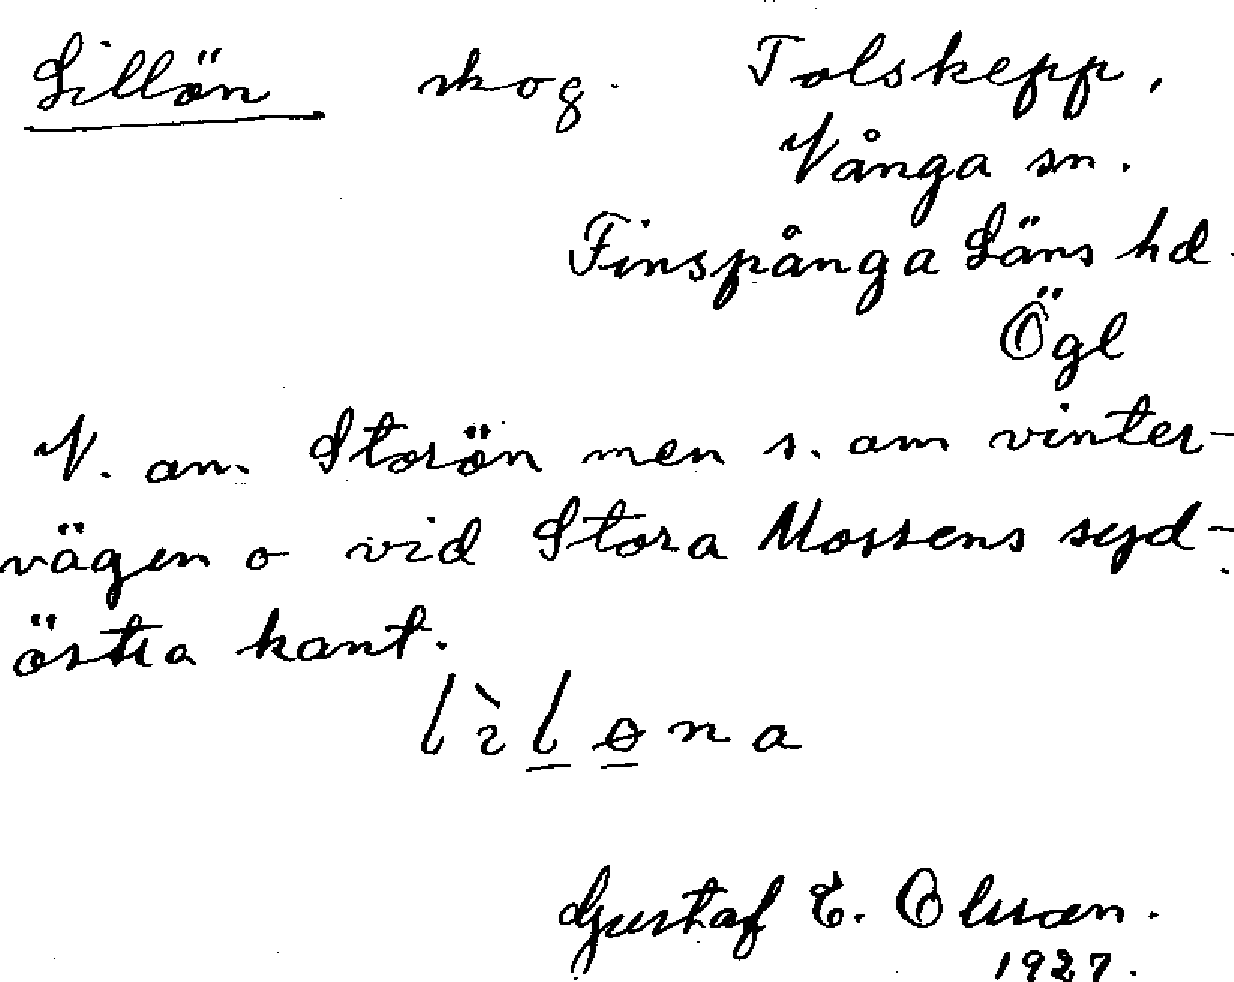 Lillön skog. Tolskepp,
Vånga sn.
Finspånga Läns hd.
Ögl
N. om Storön men s. om vinter-
vägen o vid Stora Mossens syd-
östra kant.
lìlɵna
Gustaf E. Olsson.
1927.